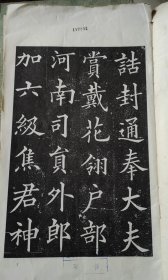 誥封通奉大夫
賞戴花翎户部
河南司貟外郎
加六級焦君神